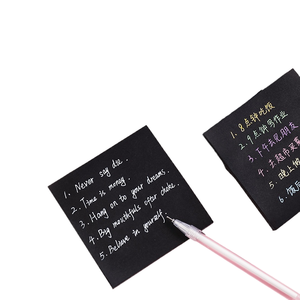 1. Never say die.
2. Time is money.
3. Hang on to your dreams.
4. Big mouthfuls often choke.
5. Believe in yourself.
1.8点钟吃饭
2.9点钟写作业
3.下午去见朋友
4.去超市买
5.晚上
6.饭后